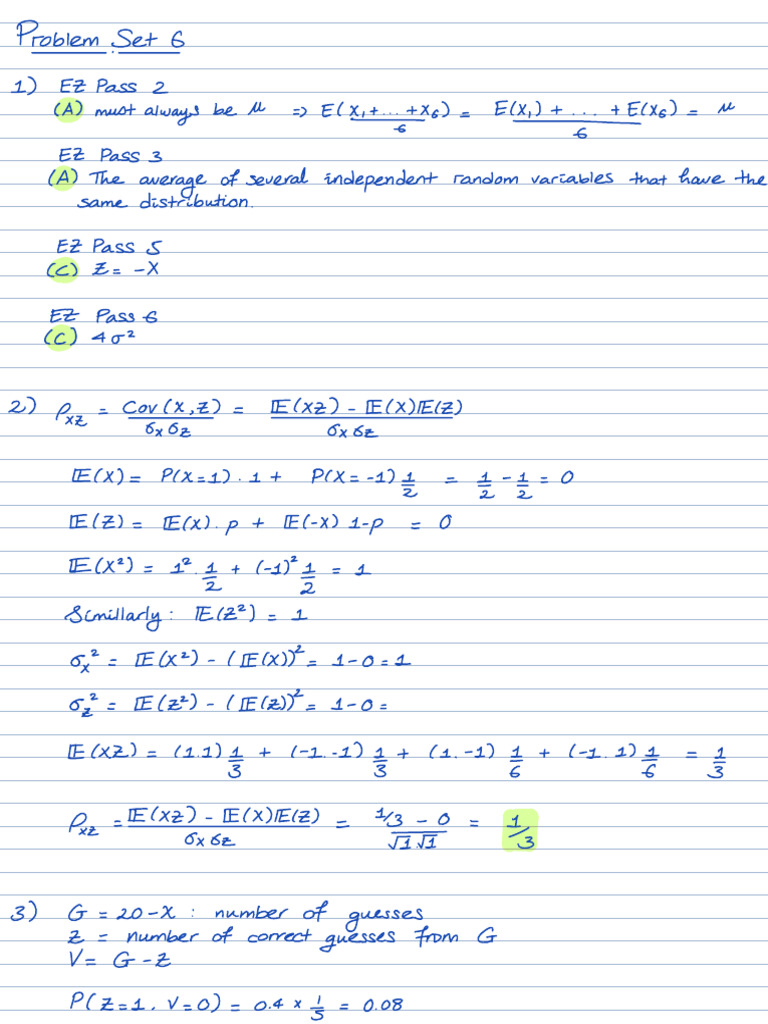 Problem Set 6
1) EZ Pass 2
(A) must always be μ => E(X₁+...+X₆)/6 = E(X₁) + ... + E(X₆)/6 = μ
EZ Pass 3
(A) The average of several independent random variables that have the
same distribution.
EZ Pass 5
(C) Z = -X
EZ Pass 6
(C) 4σ²
2) ρxz = Cov(X,Z)/σxσz = E(XZ) - E(X)E(Z)/σxσz
E(X) = P(X=1) . 1 + P(X=-1) 1/2 = 1/2 - 1/2 = 0
E(Z) = E(X). p + E(-X) 1-p = 0
E(X²) = 1². 1/2 + (-1)² 1/2 = 1
Simillarly: E(Z²) = 1
σx² = E(X²) - (E(X))² = 1-0=1
σz² = E(Z²) - (E(Z))² = 1-0=
E(XZ) = (1.1) 1/3 + (-1.-1) 1/3 + (1.-1) 1/6 + (-1.1) 1/6 = 1/3
ρxz = E(XZ) - E(X)E(Z)/σxσz = 1/3 - 0/√1√1 = 1/3
3) G = 20-X : number of guesses
Z = number of correct guesses from G
V = G-Z
P(Z=1, V=0) = 0.4 × 1/5 = 0.08